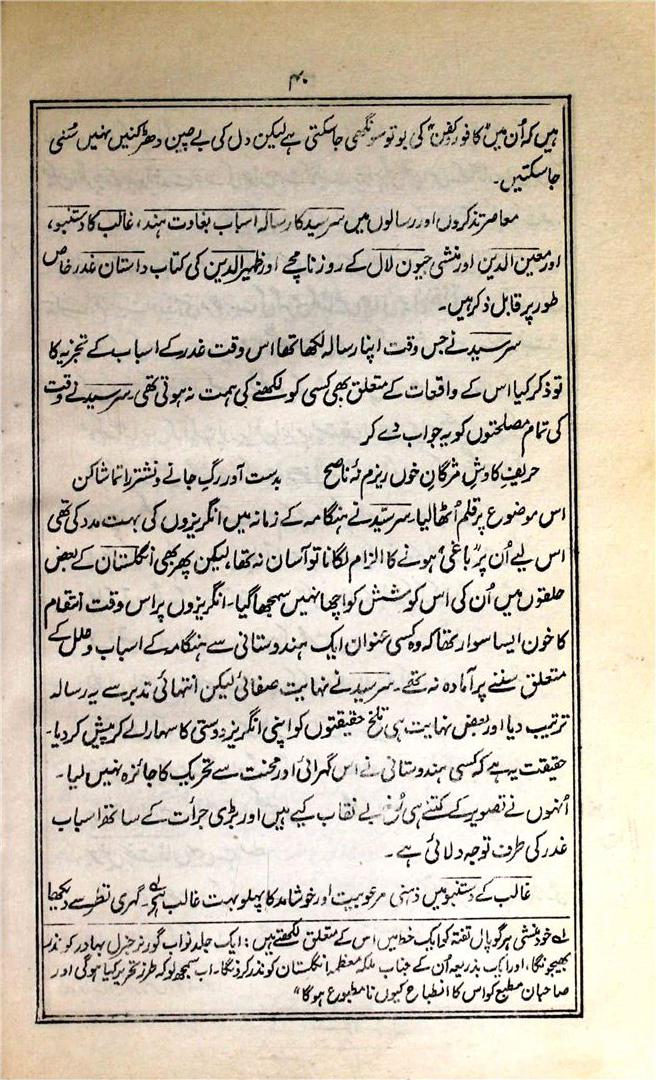 ۴۰
ہیں کہ اُن میں "کافور کفن" کی بو تو سونگھی جاسکتی ہے لیکن دل کی بے چین دھڑکنیں نہیں سُنی
جاسکتیں۔
معاصر تذکروں اور رسالوں میں سرسید کا رسالہ اسباب بغاوت ہند، غالب کا دستنبو،
اور معین الدین اور منشی جیون لال کے روزنامچے اور ظہیر الدین کی کتاب داستان غدر خاص
طور پر قابل ذکر ہیں۔
سرسید نے جس وقت اپنا رسالہ لکھا تھا اس وقت غدر کے اسباب کے تجزیہ کا
تو ذکر کیا اس کے واقعات کے متعلق بھی کسی کو لکھنے کی ہمت نہ ہوتی تھی۔ سرسید نے وقت
کی تمام مصلحتوں کو یہ جواب دے کر
حریف کاوش مژگان خوں ریزم نۂ ناصح بدست آور رگ جانے و نشتر را تماشا کن
اس موضوع پر قلم اُٹھا لیا۔ سرسید نے ہنگامہ کے زمانہ میں انگریزوں کی بہت مدد کی تھی
اس لیے اُن پر "باغی" ہونے کا الزام لگانا تو آسان نہ تھا، لیکن پھر بھی انگلستان کے بعض
حلقوں میں اُن کی اس کوشش کو اچھا نہیں سمجھا گیا۔ انگریزوں پر اس وقت انتقام
کا خون ایسا سوار تھا کہ وہ کسی عنوان ایک ہندوستانی سے ہنگامہ کے اسباب و علل کے
متعلق سننے پر آمادہ نہ تھے۔ سرسید نے نہایت صفائی لیکن انتہائی تدبر سے یہ رسالہ
ترتیب دیا اور بعض نہایت ہی تلخ حقیقتوں کو اپنی انگریز دوستی کا سہارا لے کر پیش کر دیا۔
حقیقت یہ ہے کہ کسی ہندوستانی نے اس گہرائی اور محنت سے تحریک کا جائزہ نہیں لیا۔
اُنہوں نے تصویر کے کتنے ہی رُخ بے نقاب کیے ہیں اور بڑی جرأت کے ساتھ اسباب
غدر کی طرف توجہ دلائی ہے۔
غالب کے دستنبو میں ذہنی مرعوبیت اور خوشامد کا پہلو بہت غالب ہے۔ گہری نظر سے دیکھا
لہ خود منشی ہرگوپال تفتہ کو ایک خط میں اس کے متعلق لکھتے ہیں: ایک جلد نواب گورنر جنرل بہادر کو نذر
بھیجونگا، اور ایک بذریعہ اُن کے جناب ملکہ معظمہ انگلستان کو نذر کرونگا۔ اب سمجھ لو کہ طرز تحریر کیا ہوگی اور
صاحبان مطبع کو اس کا انطباع کیوں نا مطبوع ہوگا"